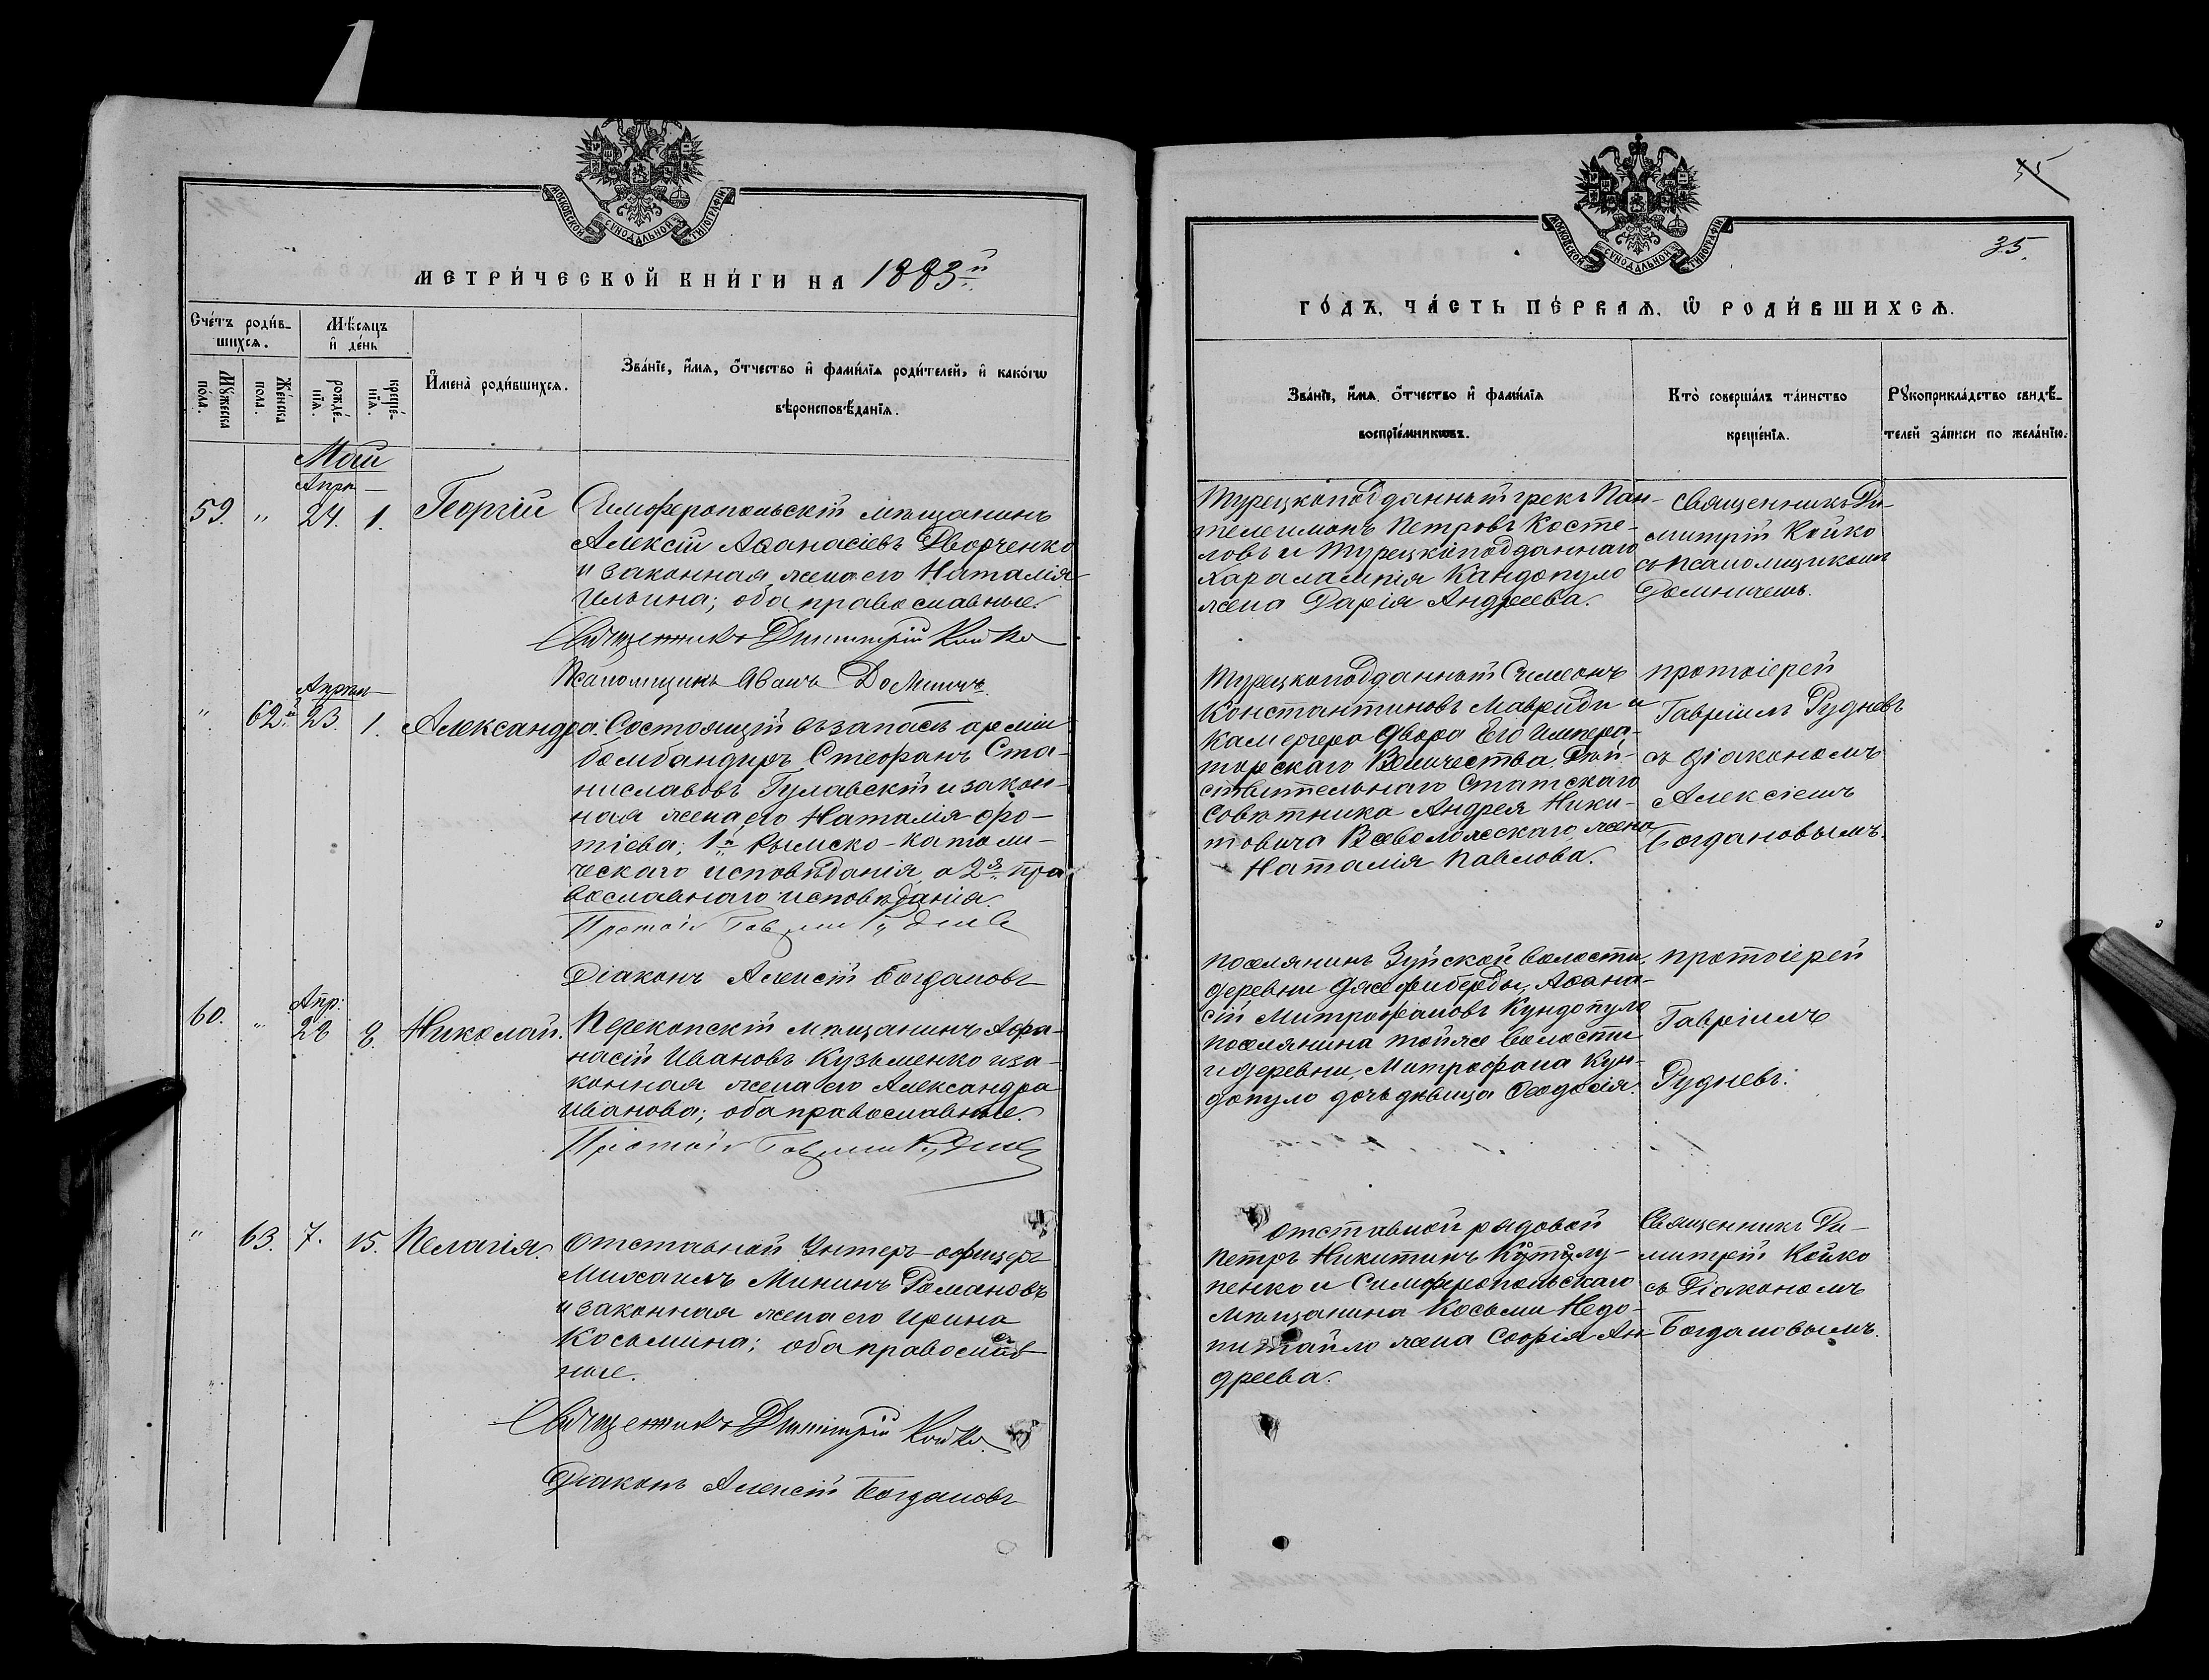 МОСКОВСКОЙ СѴНОДАЛЬНОЙ ТИПОГРАФІИ
МЕТРИ́ЧЕСКОЙ КНИ́ГИ НА 1883й
Сче́тъ роди́в-
шихсѧ.
Мѣ́сѧцъ
и҆ де́нь
Мꙋ́жеска
по́ла.
Же́нска
пола.
рожде́-
нїѧ.
креще́-
нїѧ.
И҆мена̀ роди́вшихсѧ.
Зва́нїе, и҆́мѧ, ѻ҆́тчество и҆ фамилїѧ роди́телей, и҆ како́гѡ
вѣроисповѣ́данїѧ.
Май
Апрл
59. " 24. 1. Георгій
Симферопольскій мѣщанинъ
Алексій Аѳанасіевъ Дворченко
и законная жена его Наталія
Ильина; оба православные.
Священникъ Димитрій Койко
Псаломщикъ Иванъ Доминичъ.
Апрѣл
" 62й 23. 1. Александра.
Состоящій въ запасѣ арміи
бомбандиръ Стефанъ Ста-
ниславовъ Гулавскій и закон-
ная жена его Наталія Фо-
тіева; 1й Римско-Католи-
ческаго исповѣданія, а 2я пра-
вославнаго исповѣданія.
Протоіе Гавріилъ Рудневъ
Діаконъ Алексій Богдановъ
Апр:
60. " 28 8. Николай.
Перекопскій мѣщанинъ Афа-
насій Ивановъ Кузьменко и за-
конная жена его Александра
Иванова; оба православные.
Протоіе Гавріилъ Рудневъ
" 63. 7. 15. Пелагія.
Отставной Унтеръ-офицеръ
Михаилъ Мининъ Романовъ
и законная жена его Ирина
Косьмина; оба православ-
ные.
Священникъ Димитрій Койко.
Діаконъ Алексій Богдановъ
35
35.
МОСКОВСКОЙ СѴНОДАЛЬНОЙ ТИПОГРАФІИ
ГО́ДЪ, ЧА́СТЬ ПЕ́РВАѦ, Ѿ РОДИ́ВШИХСѦ.
Зва́нїе, и҆́мѧ, ѻ҆́тчество и҆ фами́лїѧ
воспрїе́мникѡвъ.
Кто̀ соверша́лъ та́инство
креще́нїѧ.
Рꙋкоприкла́дство свидѣ́-
телей за́писи по жела́нїю.
Турецкоподданный грекъ Пан-
телеимонъ Петровъ Косте-
ловъ и Турецкоподданнаго
Харалампія Кандопуло
жена Дарія Андреева.
Священникъ Ди-
митрій Койко
съ псаломщикомъ
Доминичемъ.
Турецкоподданный Симеонъ
Константиновъ Мавриди и
Камергера Двора Его Импера-
торскаго Величества, Дѣй-
ствительнаго Статскаго
Совѣтника Андрея Ники-
товича Всеволожскаго жена
Наталія Павлова.
протоіерей
Гавріилъ Рудневъ
съ діакономъ
Алексіемъ
Богдановымъ.
поселянинъ Зуйской волости,
деревни Аѳана-
сій Митрофановъ Кундопуло
поселянина тойже волости
и деревни, Митрофана Кун-
допуло дочь дѣвица Ѳеодосія.
протоіерей
Гавріилъ
Рудневъ.
Отставной рядовой
Петръ Никитинъ
и Симферопольскаго
мѣщанина Косьмы Недо-
питайло жена Софія Ан-
дреева.
Священникъ Ди-
митрій Койко
съ Діакономъ
Богдановымъ.